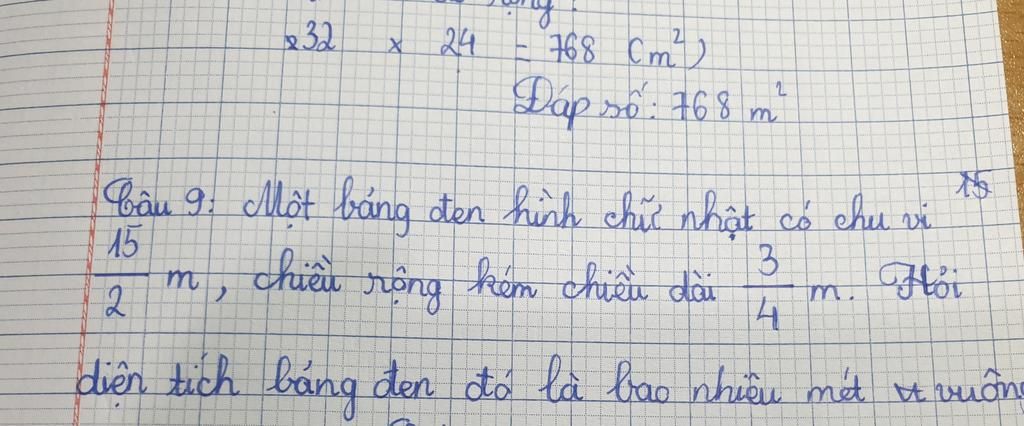 32 x 24 = 768 (m²)
Đáp số: 768 m²
Câu 9: Một bảng đen hình chữ nhật có chu vi
15/2 m, chiều rộng kém chiều dài 3/4 m. Hỏi
diện tích bảng đen đó là bao nhiêu mét vuông